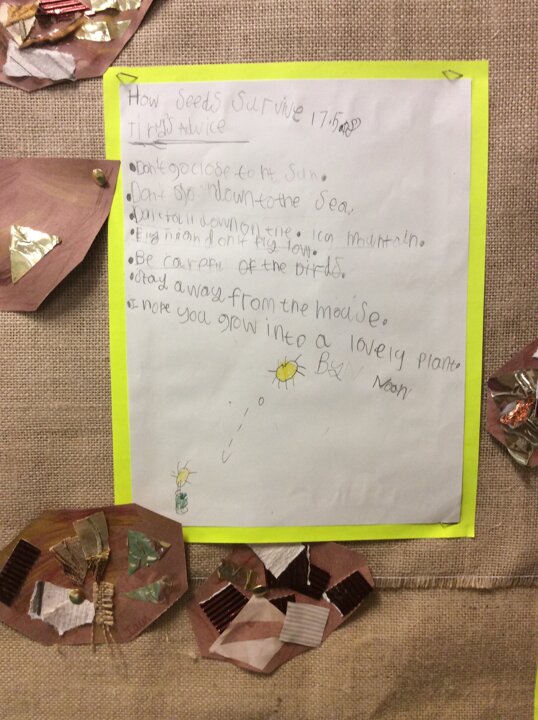 How Seeds Survive 17.5.
Advice
•Don't go close to ht Sun.
•Don't go down to the Sea,
down on the. Icn Mountain.
don't fly low.
•Be carefl of the birds.
•Stay away from the mouse.
•I hope you grow into a lovely plant.
By
Noah